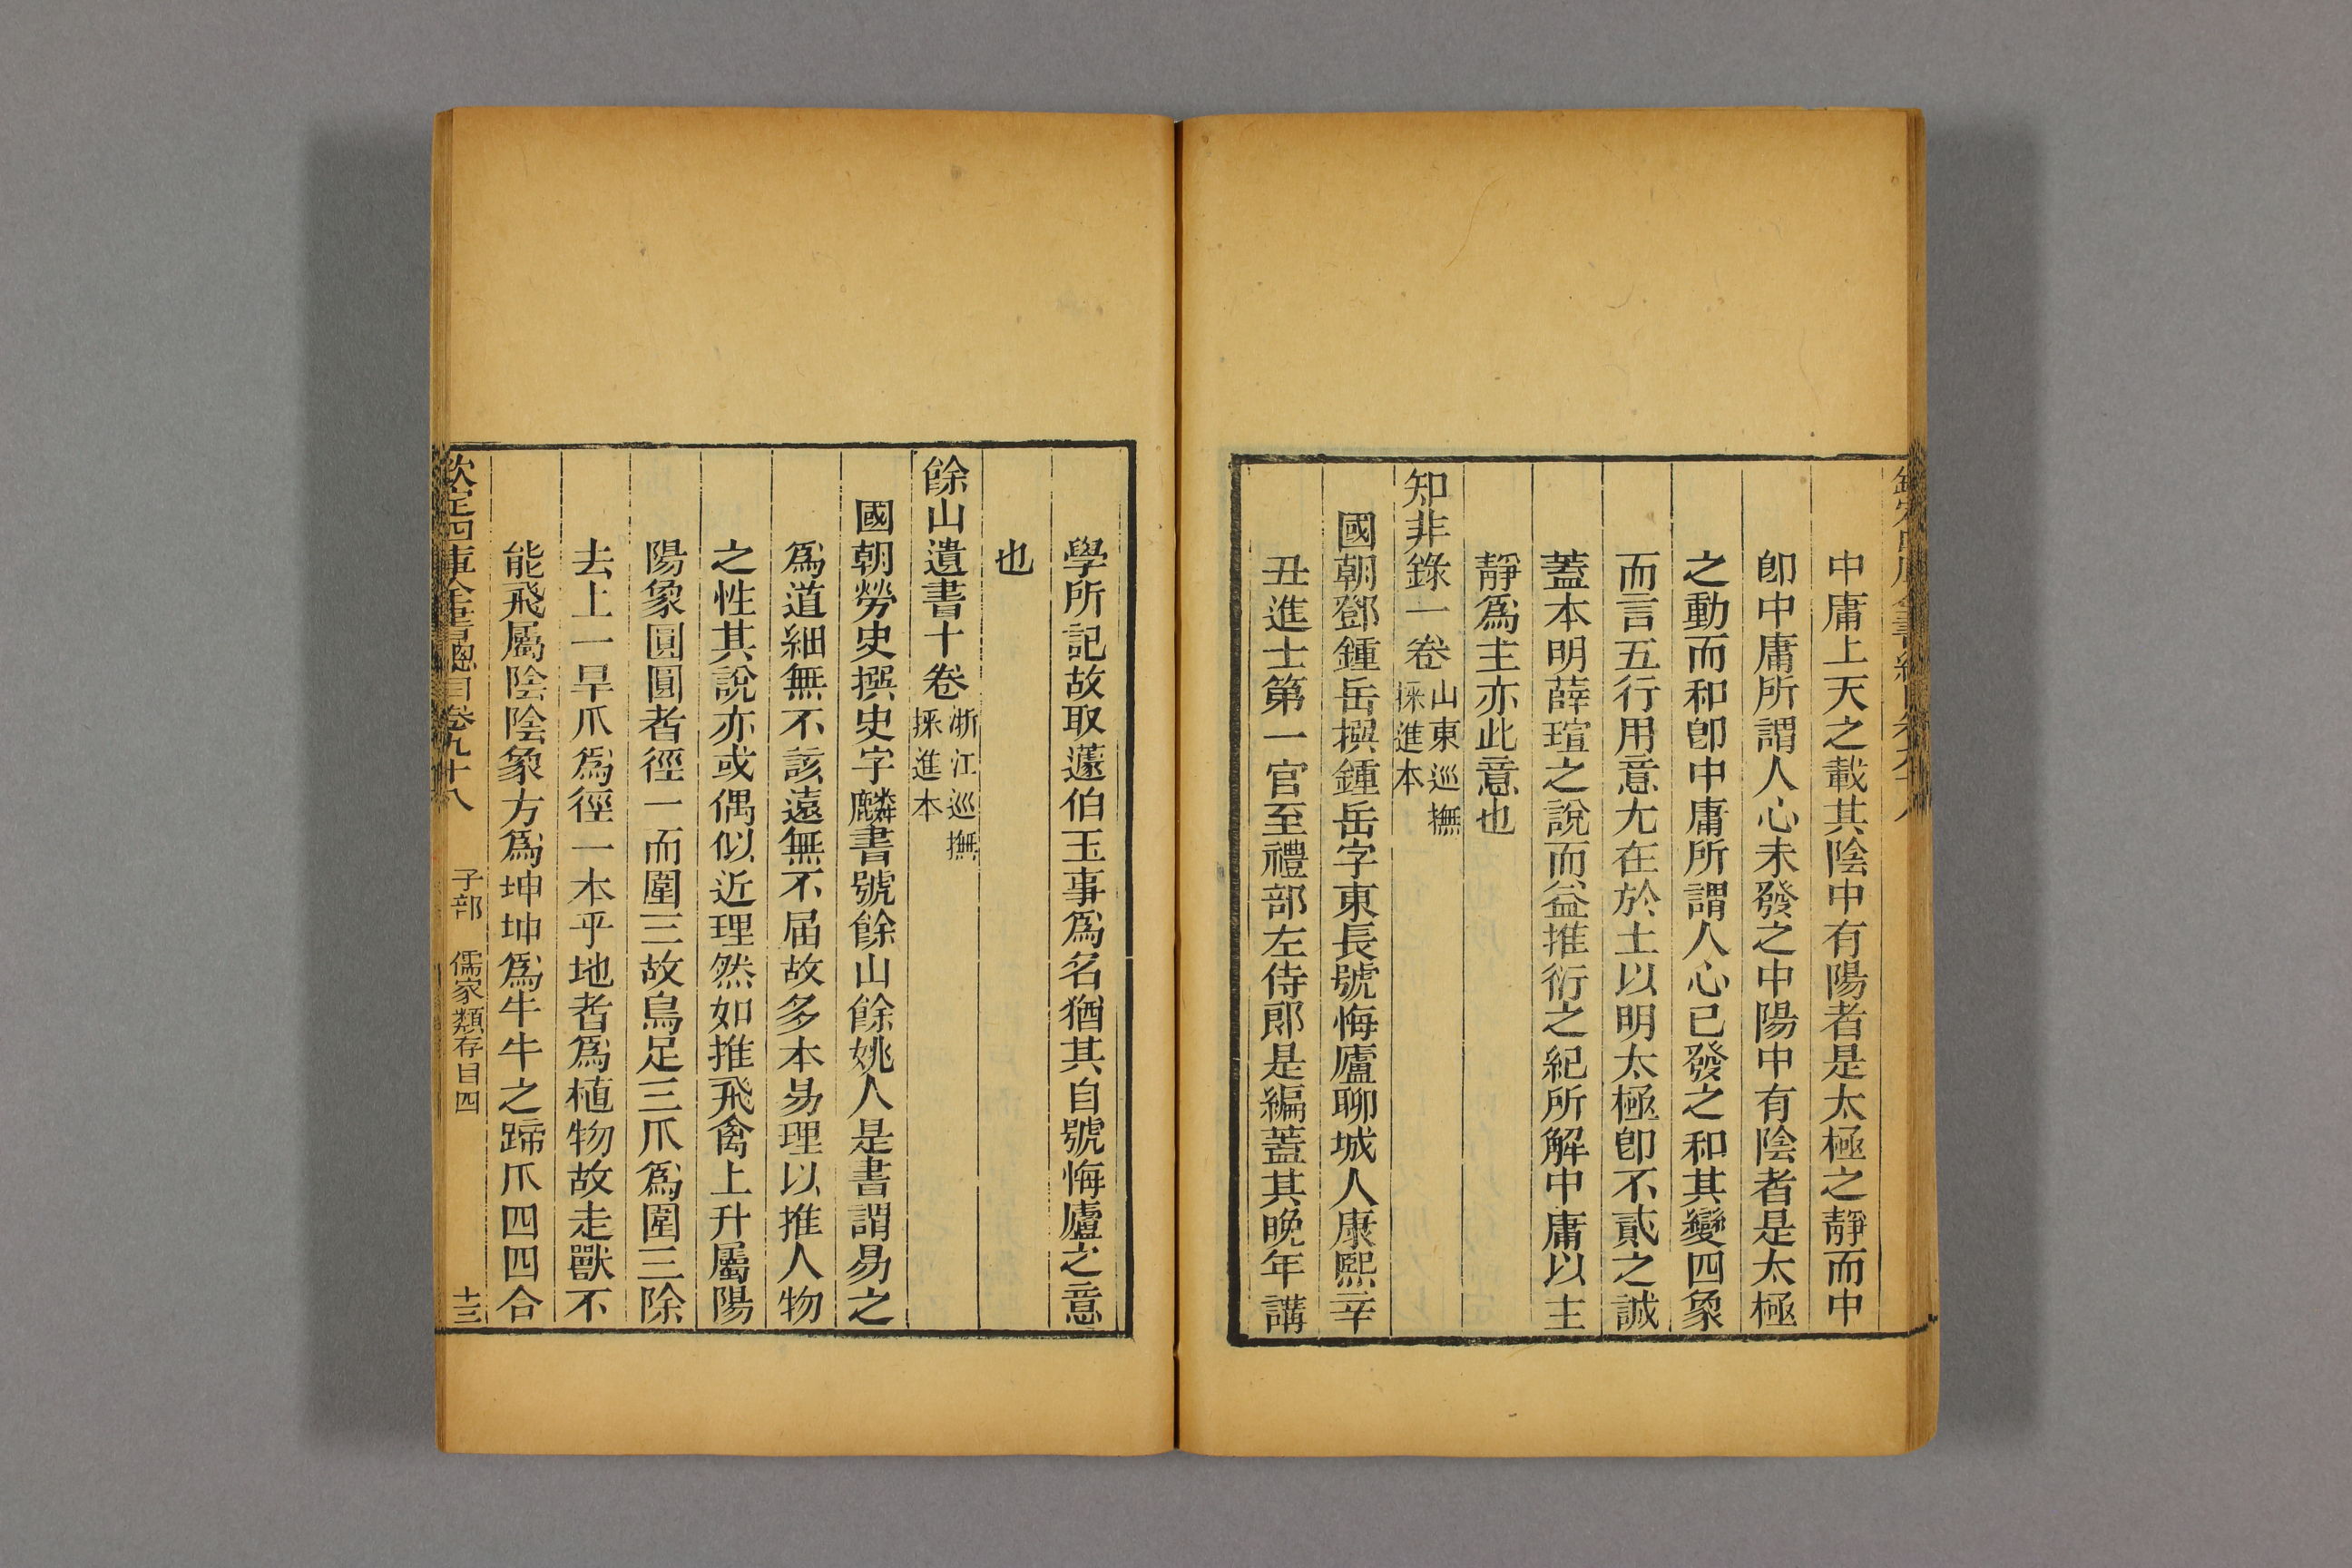 中庸上天之載其陰中有陽者是太極之靜而中
卽中庸所謂人心未發之中陽中有陰者是太極
之動而和卽中庸所謂人心已發之和其變四象
而言五行用意尤在於土以明太極卽不貳之誠
蓋本明薛瑄之說而益推衍之紀所解中庸以主
靜爲主亦此意也
知非錄一卷山東巡撫
採進本
國朝鄧鍾岳撰鍾岳字東長號悔廬聊城人康熙辛
丑進士第一官至禮部左侍郎是編蓋其晚年講
學所記故取蘧伯玉事爲名猶其自號悔廬之意
也
餘山遺書十卷浙江巡撫
採進本
國朝勞史撰史字麟書號餘山餘姚人是書謂易之
爲道細無不該遠無不届故多本易理以推人物
之性其說亦或偶似近理然如推飛禽上升屬陽
陽象圓圓者徑一而圍三故鳥足三爪爲圍三除
去上一旱爪爲徑一本乎地者爲植物故走獸不
能飛屬陰陰象方爲坤坤爲牛牛之蹄爪四四合
欽定四庫全書總目卷九十八 子部 儒家類存目四 十三